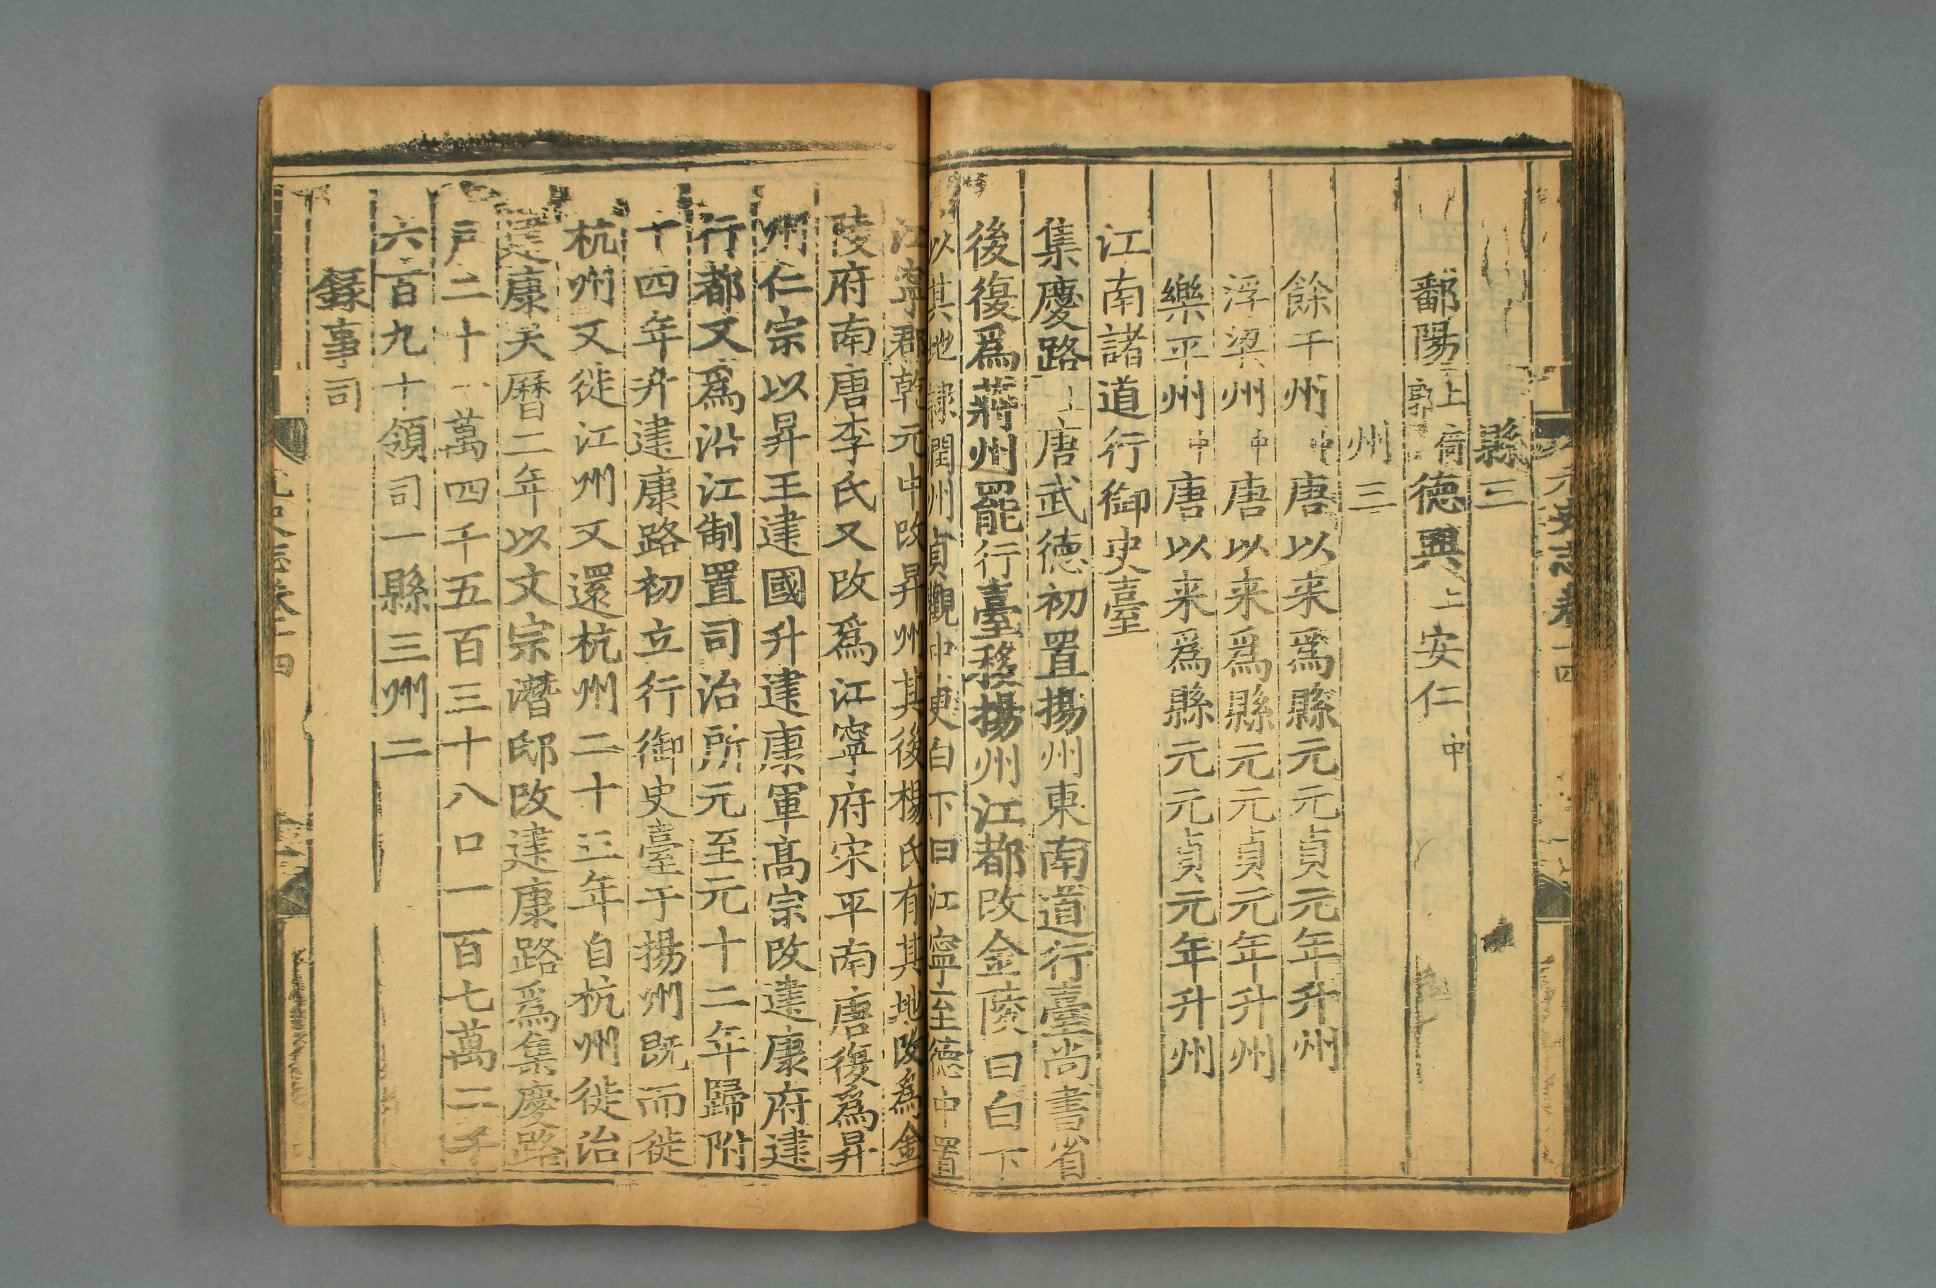 元史志卷十四
縣三
鄱陽上倚郭德興上安仁中
州三
餘干州中唐以来爲縣元元貞元年升州
浮梁州中唐以来爲縣元元貞元年升州
樂平州中唐以来爲縣元元貞元年升州
江南諸道行御史臺
集慶路上唐武德初置揚州東南道行臺尚書省
後復爲蔣州罷行臺移揚州江都改金陵曰白下
以其地隸潤州貞觀中更白下曰江寧至德中置
江寧郡乾元中改昇州其後楊氏有其地改爲金
陵府南唐李氏又改爲江寧府宋平南唐復爲昇
州仁宗以昇王建國升建康軍髙宗改建康府建
行都又爲沿江制置司治所元至元十二年歸附
十四年升建康路初立行御史臺于揚州既而徙
杭州又徙江州又還杭州二十三年自杭州徙治
建康天曆二年以文宗潛邸改建康路爲集慶路
戸二十一萬四千五百三十八口一百七萬二千
六百九十領司一縣三州二
錄事司
元史志卷十四